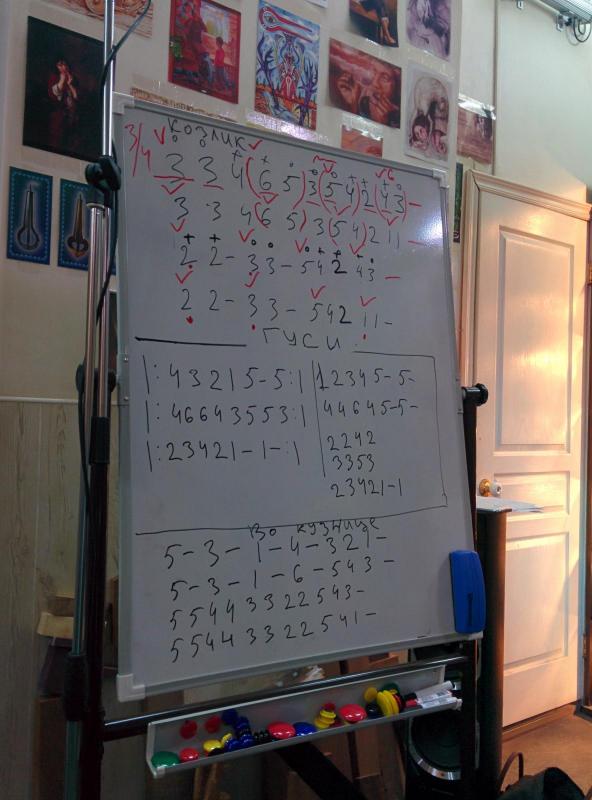 3/4 козлик
3 3 4 (6 5) 3 (5 4) 2 (4 3) –
3 3 4 (6 5) 3 (5 4) 2 1 1 –
2 2 – 3 3 – 5 4 2 4 3 –
2 2 – 3 3 – 5 4 2 1 1 –
ГУСИ
|: 4 3 2 1 5 – 5 :|
|: 4 6 6 4 3 5 5 3 :|
|: 2 3 4 2 1 – 1 – :|
1 2 3 4 5 – 5 –
4 4 6 4 5 – 5 –
2 2 4 2
3 3 5 3
2 3 4 2 1 – 1
Во кузнице
5 – 3 – 1 – 4 – 3 2 1 –
5 – 3 – 1 – 6 – 5 4 3 –
5 5 4 4 3 3 2 2 5 4 3 –
5 5 4 4 3 3 2 2 5 4 1 –